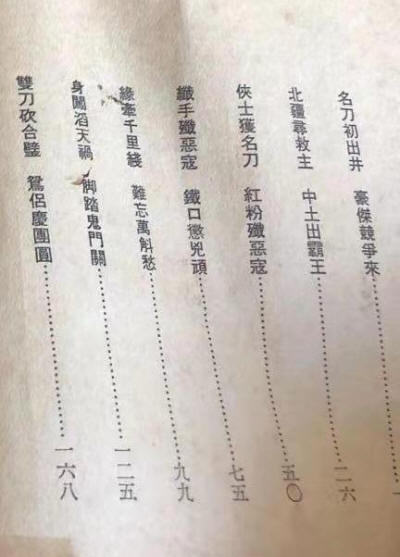 名刀初出井 豪傑競爭來……一
北疆尋救主 中土出霸王……二六
俠士獲名刀 紅粉殲惡寇……五〇
纖手殲惡寇 鐵口懲兇頑……七五
緣牽千里綫 難忘萬斛愁……九九
身闖滔天禍 脚踏鬼門關……一二五
雙刀砍合璧 鴛侶慶團圓……一六八